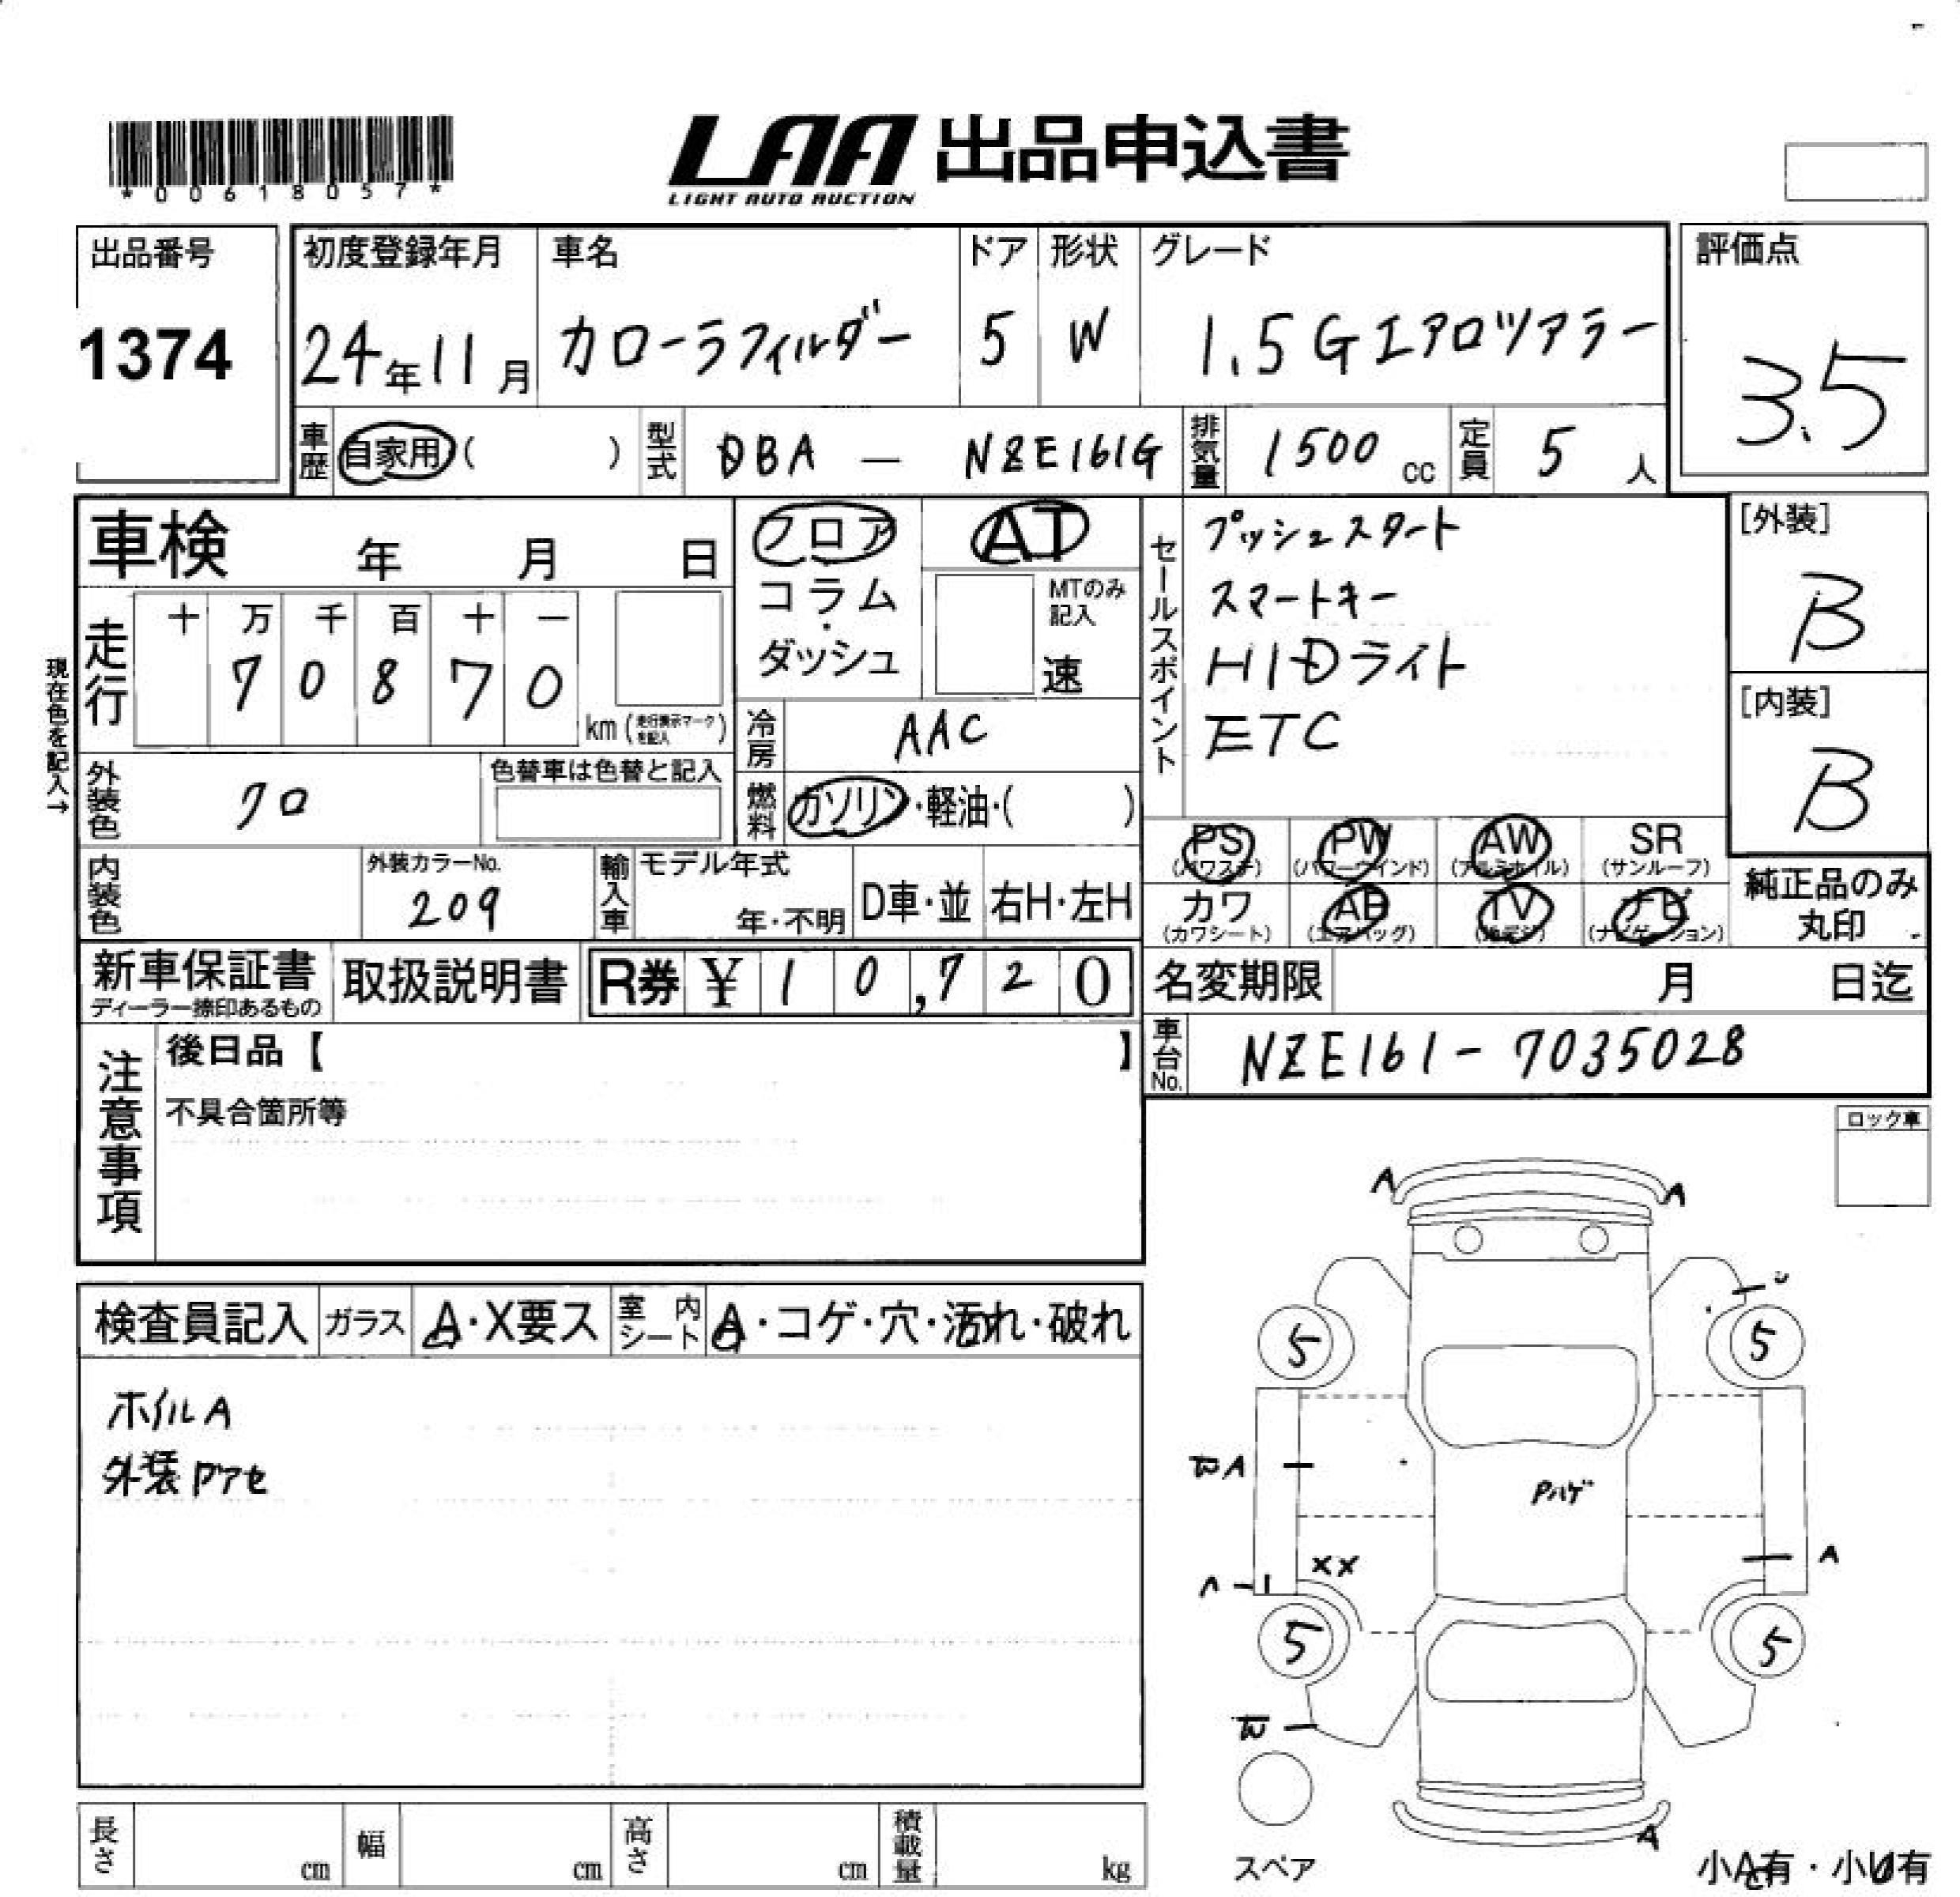 *00618057*
LAA 出品申込書
LIGHT AUTO AUCTION
出品番号
1374
初度登録年月
24年11月
車名
カローラフィルダー
ドア
5
形状
W
グレード
1.5Gエアロツアラー
評価点
3.5
車歴 自家用( )
型式 DBA — NZE161G
排気量 1500 cc
定員 5 人
車検 年 月 日
フロア
コラム・
ダッシュ
AT
MTのみ
記入
速
セールスポイント
プッシュスタート
スマートキー
HIDライト
ETC
[外装]
B
[内装]
B
現在色を記入→
走行
十 万 千 百 十 一
7 0 8 7 0
km (走行表示マークを記入)
冷房 AAC
外装色 クロ
色替車は色替と記入
燃料 ガソリン・軽油・( )
PS (パワステ)
PW (パワーウインド)
AW (アルミホイル)
SR (サンルーフ)
カワ (カワシート)
AB (エアバッグ)
TV (地デジ)
ナビ (ナビゲーション)
純正品のみ
丸印
内装色
外装カラーNo.
209
輸入車
モデル年式
年・不明
D車・並
右H・左H
新車保証書
ディーラー捺印あるもの
取扱説明書
R券 ¥ 10,720
名変期限 月 日迄
車台No. NZE161-7035028
注意事項
後日品【 】
不具合箇所等
ロック車
検査員記入
ガラス A・X要ス
室内シート A・コゲ・穴・汚れ・破れ
ホイルA
外装Pアセ
A A
5 5
A
Pハゲ
XX
A
5 5
A
スペア
小A有・小U有
長さ cm
幅 cm
高さ cm
積載量 kg